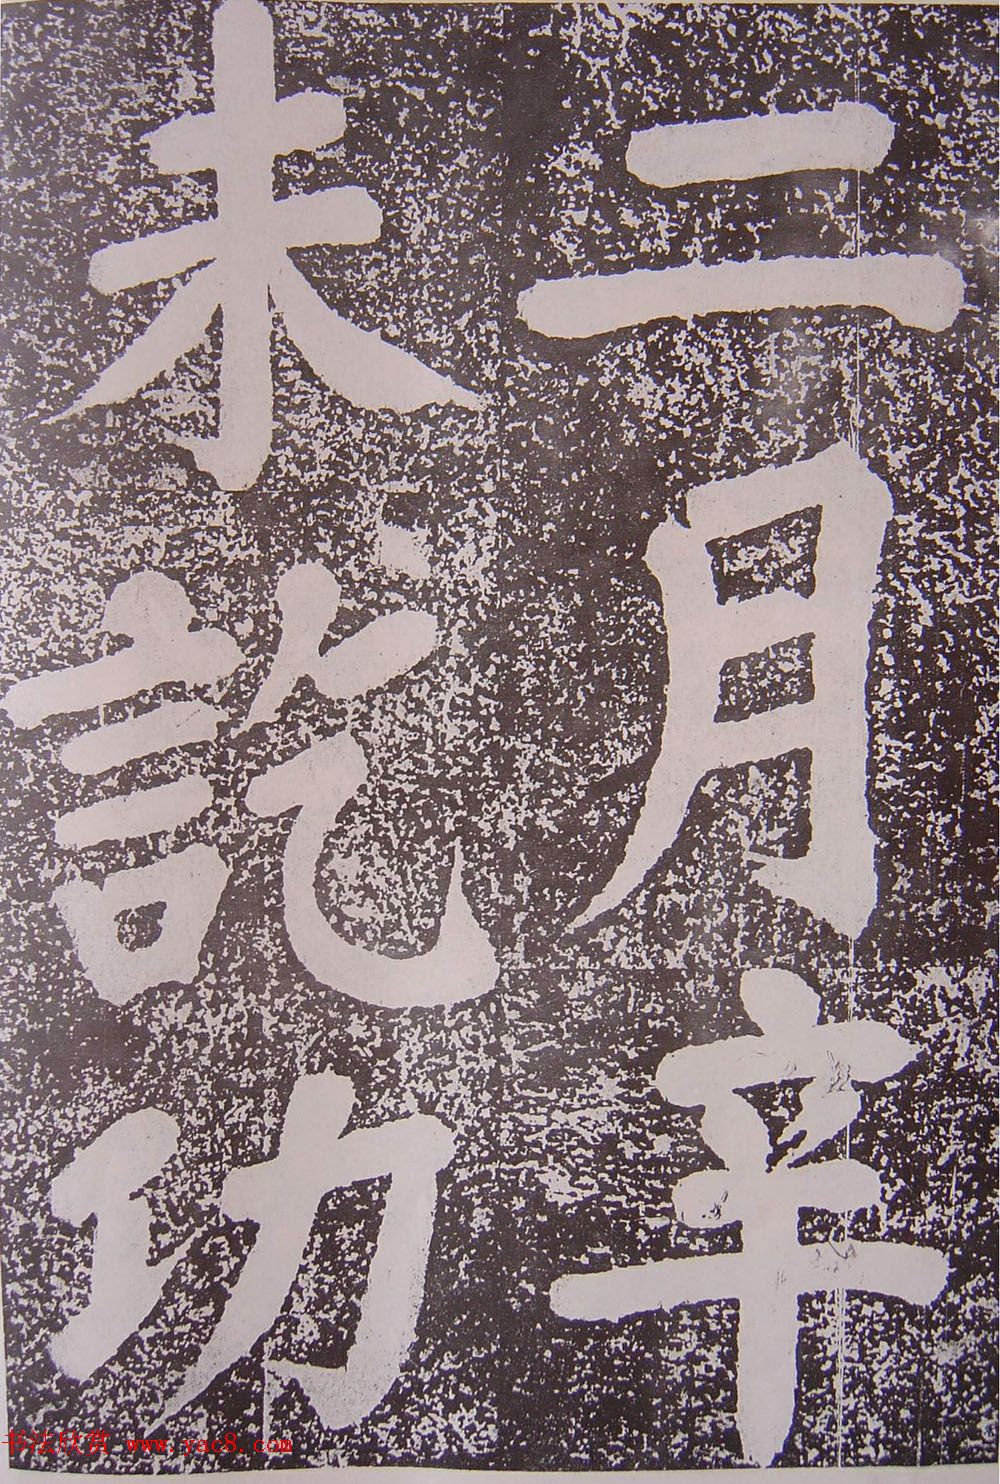 二月辛
未訖功
书法欣赏 www.yac8.com